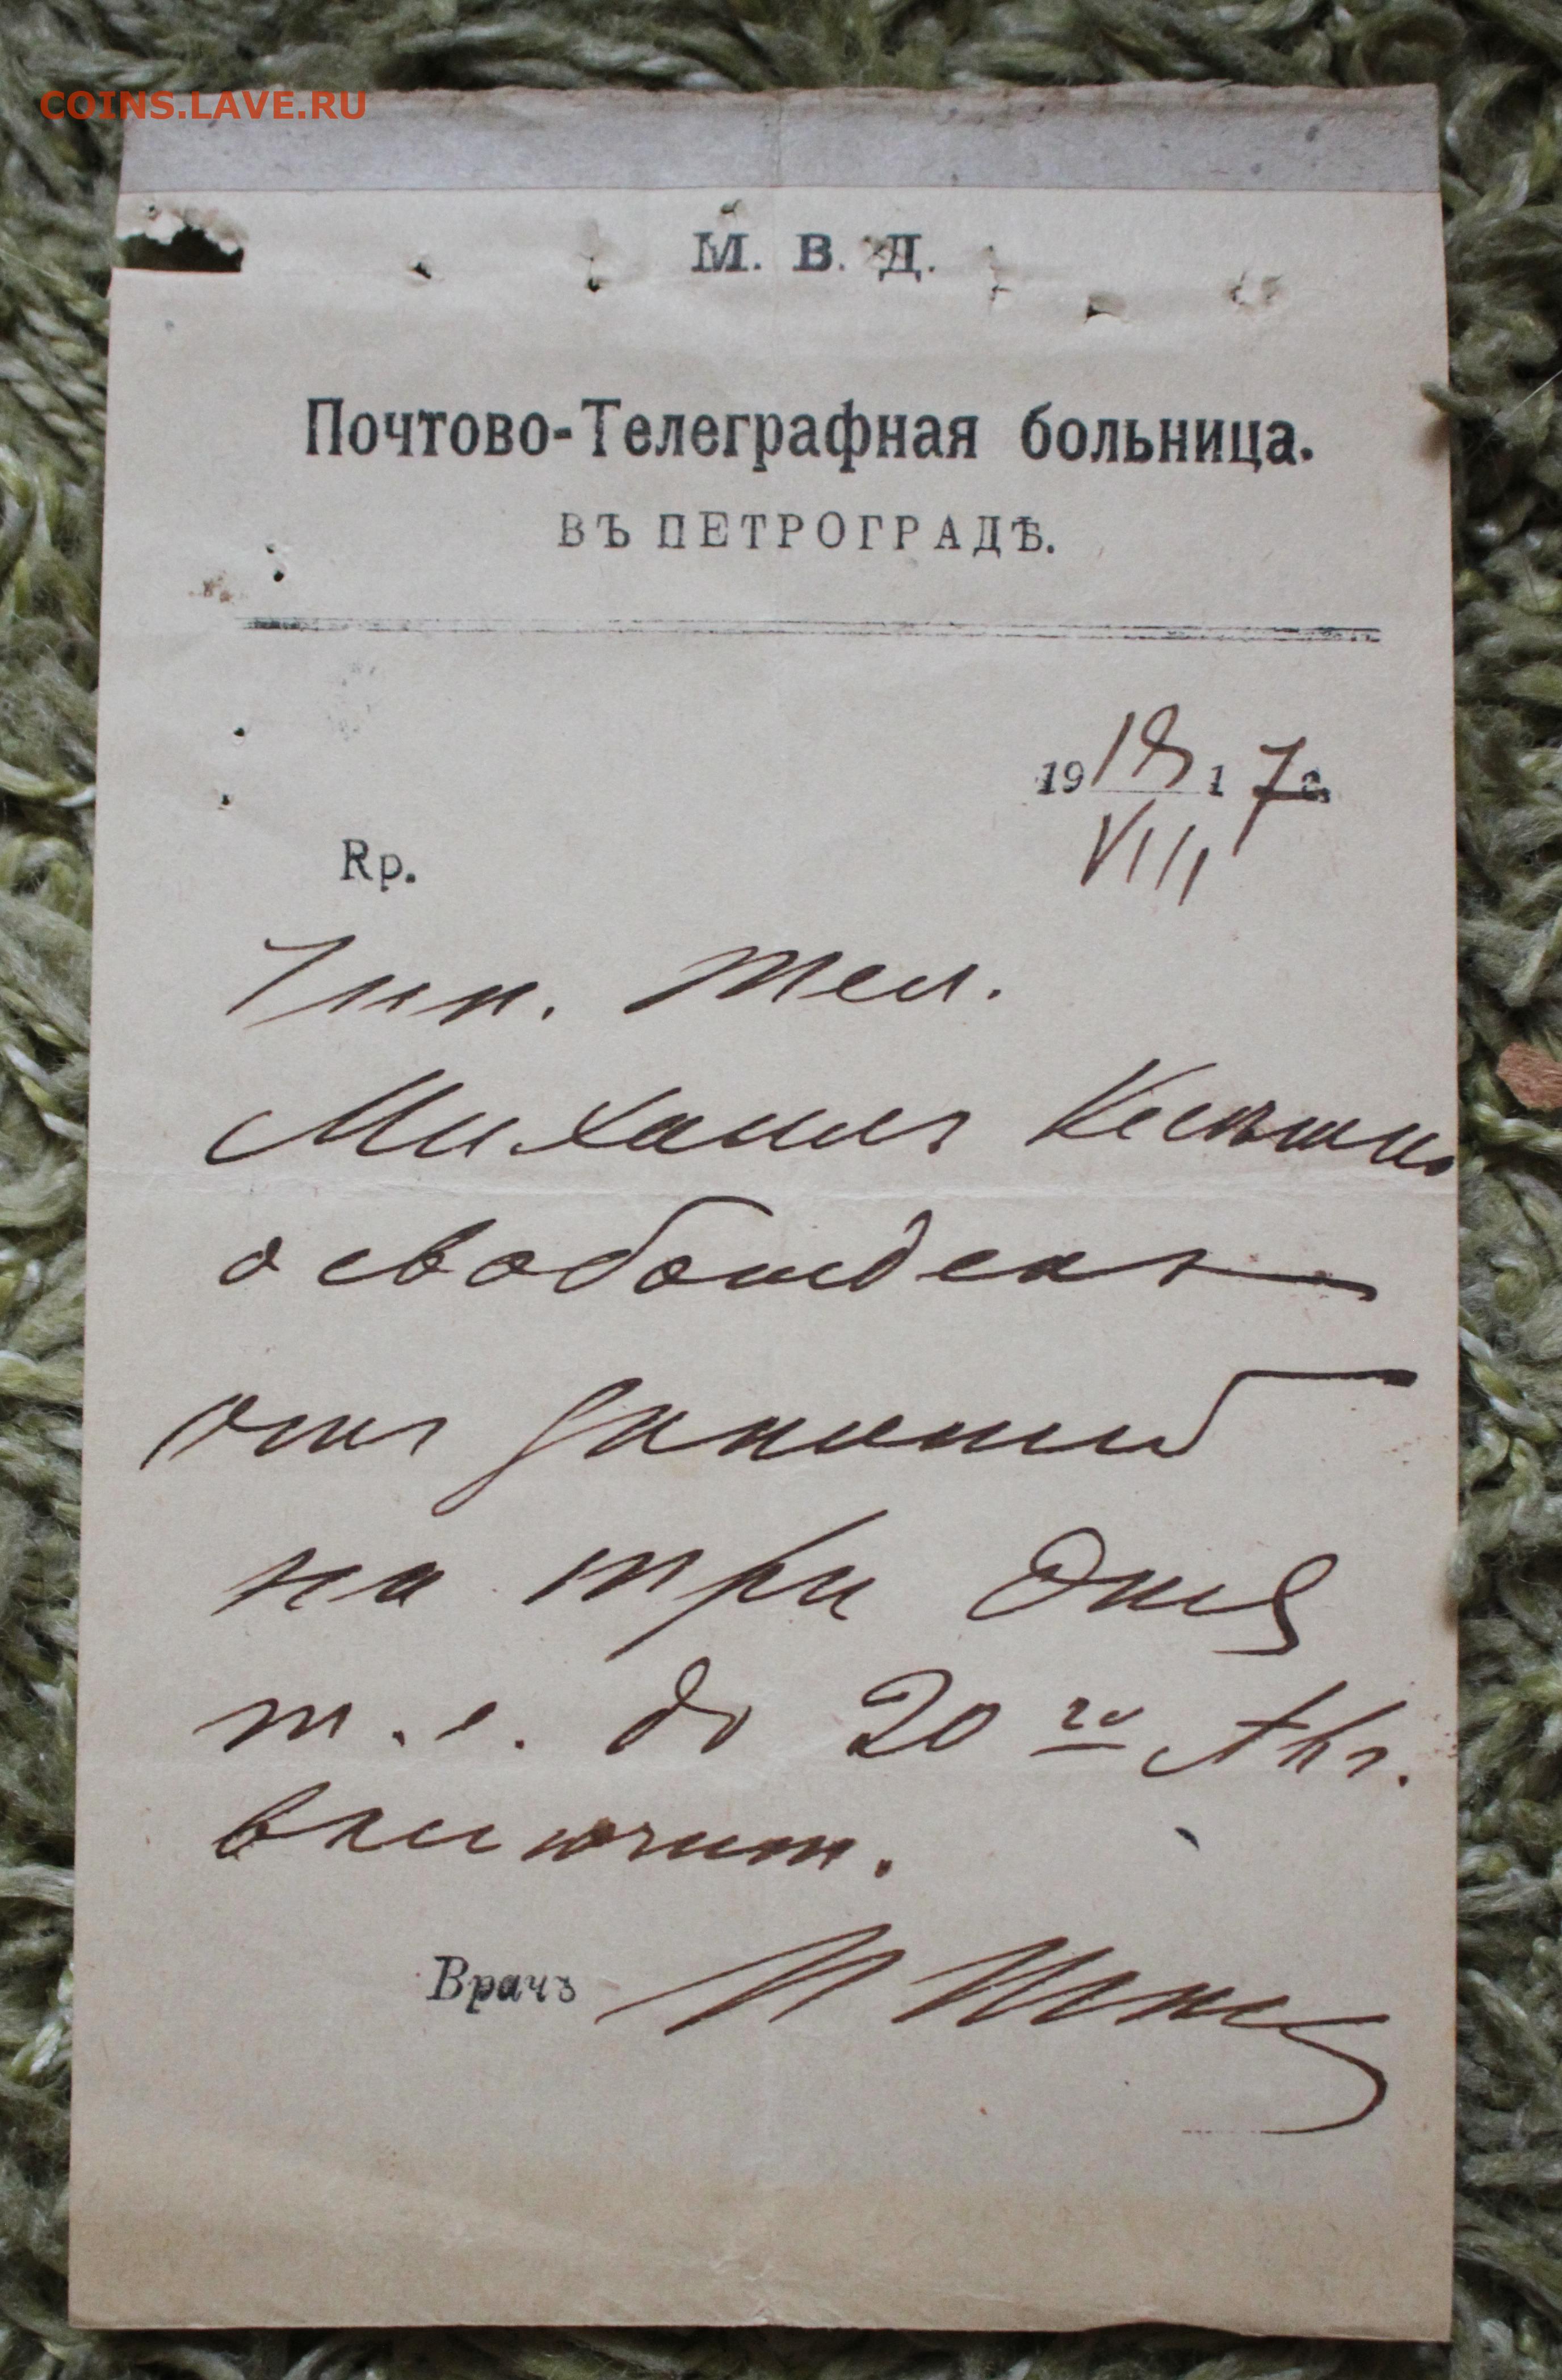 COINS.LAVE.RU
М. В. Д.
Почтово-Телеграфная больница.
ВЪ ПЕТРОГРАДѢ.
19 18 1 7 г.
VIII
Rp.
тел.
Михаилъ
освобожденъ
отъ занятий
на три дня
т. е. до 20 го Авг.
включит.
Врачъ